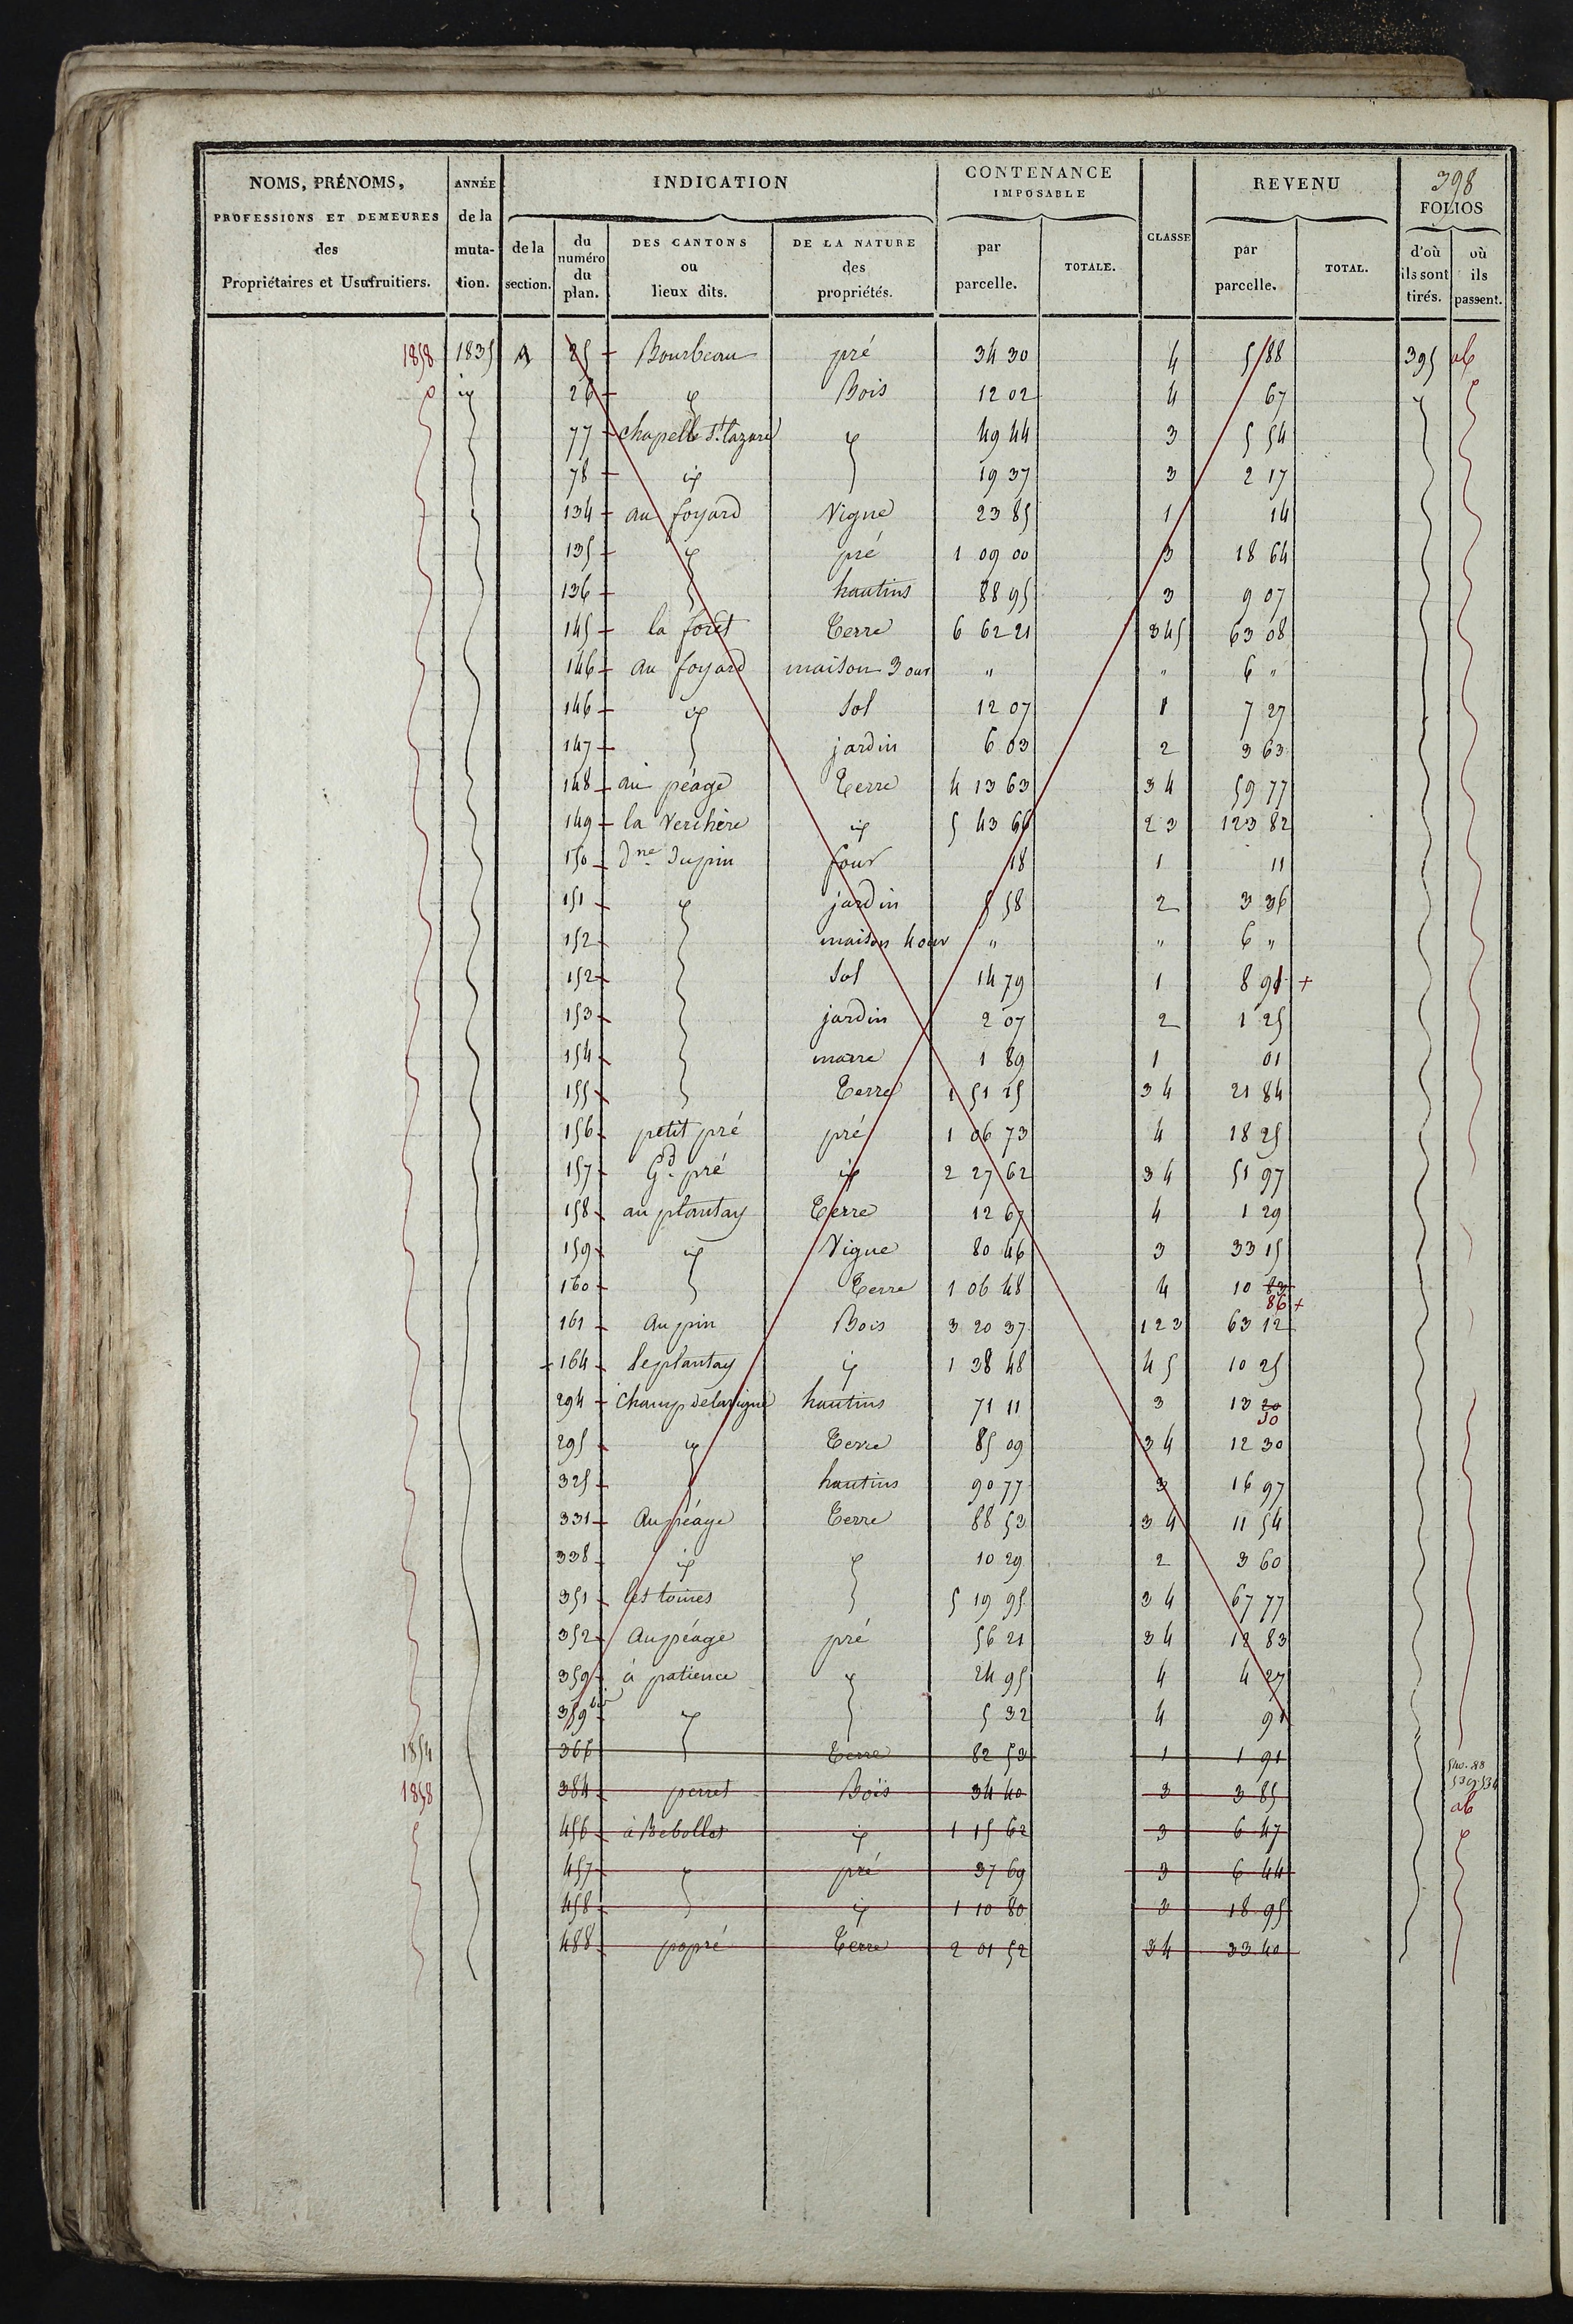 398
NOMS, PRÉNOMS, PROFESSIONS ET DEMEURES des Propriétaires et Usufruitiers.
ANNÉE de la muta-tion.
INDICATION
de la section.
du numéro du plan.
DES CANTONS ou lieux dits.
DE LA NATURE des propriétés.
CONTENANCE IMPOSABLE
par parcelle.
TOTALE.
CLASSE
REVENU
par parcelle.
TOTAL.
FOLIOS
d'où ils sont tirés.
où ils passent.
1858 1835 A 25 Bourbeau pré 34 30 4 5 88 395 ab
id 26 id Bois 12 02 4 67 id
77 chapelle St. lazare id 49 44 3 5 54
78 id 19 37 3 2 17
134 au foyard Vigne 23 85 1 14
135 id pré 1 09 00 3 18 64
136 hautins 88 95 3 9 07
145 la forêt Terre 6 62 21 345 63 08
146 au foyard maison 3 ouv " " 6 "
146 id Sol 12 07 1 7 27
147 jardin 6 03 2 3 63
148 au péage Terre 4 13 63 34 59 77
149 la Verchère id 5 43 66 23 123 82
150 Dne Dupin four 18 1 11
151 id jardin 5 58 2 3 36
152 maison 4 ouv " " 6 "
152 Sol 14 79 1 8 91 +
153 jardin 2 07 2 1 25
154 marre 1 89 1 01
155 Terre 1 51 25 34 21 84
156 petit pré pré 1 06 73 4 18 25
157 Gd. pré id 2 27 62 34 51 97
158 au plantay Terre 12 67 4 1 29
159 id Vigne 80 46 3 33 15
160 Terre 1 06 48 4 10 83
86 +
161 au pin Bois 3 20 37 123 63 12
164 le plantay id 1 38 48 45 10 25
294 champ de la vigne hautins 71 11 3 13 20
30
295 id Terre 85 09 34 12 30
325 hautins 90 77 3 16 97
331 Au péage Terre 88 53 34 11 54
338 id id 10 29 2 3 60
351 les toines 5 19 95 34 67 77
352 Au péage pré 56 21 34 12 83
359 à patience id 24 95 4 4 27
359 bis id 5 32 4 91
1854 366 Terre 82 53 1 1 91
1858 384 perret Bois 34 40 3 3 85 ab
456 à Bebollet id 1 15 62 3 6 47 id
457 id pré 37 69 3 6 44
458 id 1 10 80 3 18 95
488 popré Terre 2 01 52 34 33 40